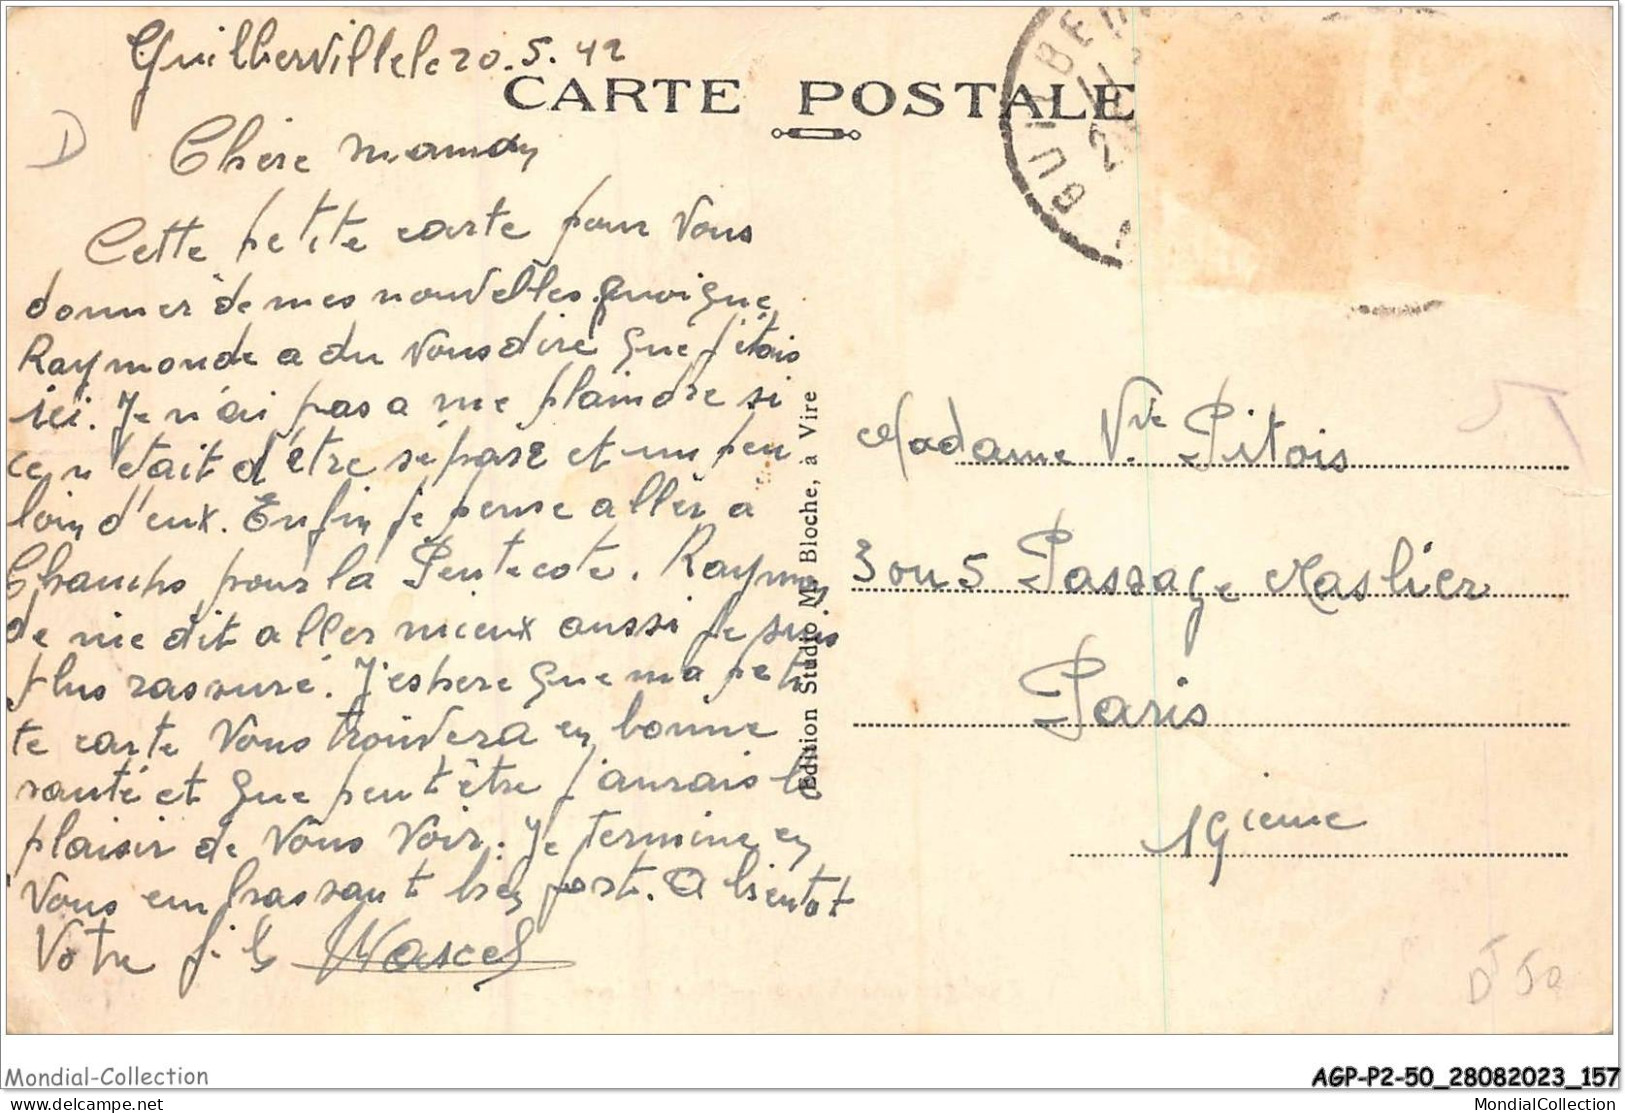 Guilberville le 20.5.42
CARTE POSTALE
GUILBER
D
Chère maman
Cette petite carte pour Vous
donner de mes nouvelles. Quoique
Raymonde a du Vous dire que j'étois
ici. Je n'ai pas a me plaindre si
ce n'était d'être séparé et un peu
loin d'eux. Enfin je pense aller a
Champs pour la Pentecote. Raymon
de me dit aller mieux aussi je suis
plus rassuré. J'espere que ma peti
te carte Vous trouvera en bonne
santé et que peut être j'aurais le
plaisir de Vous Voir. Je termine en
Vous embrassant bien fort. A bientot
Votre fils Marcel
Edition Studio M. Bloche, a Vire
Madame Vve Pitois
3 ou 5 Passage Maslier
Paris
19ieme
D 50
Mondial-Collection
AGP-P2-50_28082023_157
delcampe.net
MondialCollection